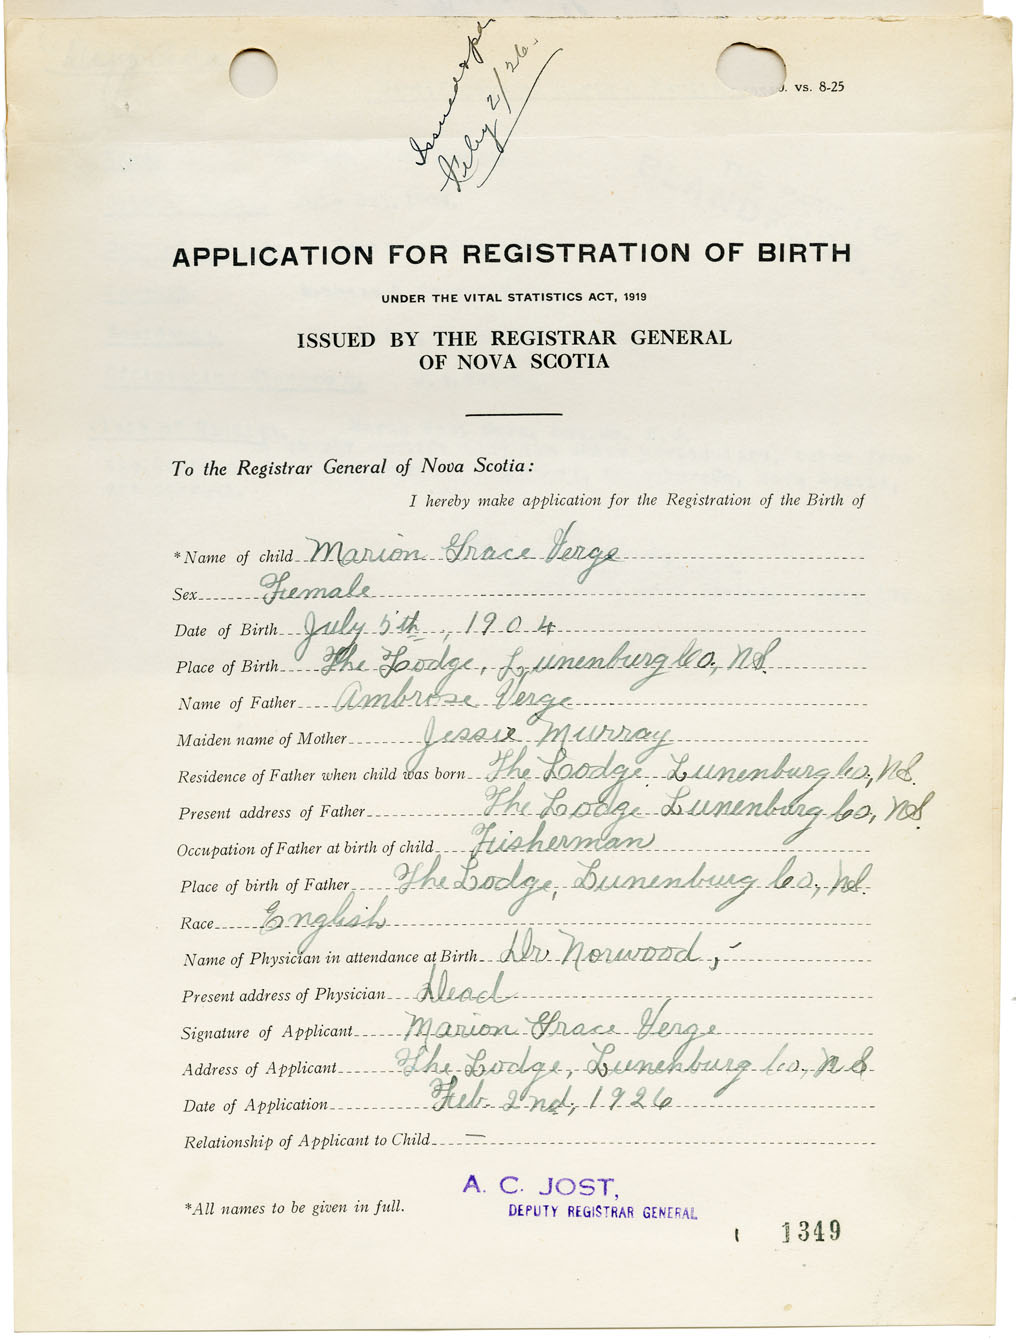 Issued & pd.
Feby 2/26.
o. vs. 8-25
APPLICATION FOR REGISTRATION OF BIRTH
UNDER THE VITAL STATISTICS ACT, 1919
ISSUED BY THE REGISTRAR GENERAL
OF NOVA SCOTIA
To the Registrar General of Nova Scotia:
I hereby make application for the Registration of the Birth of
*Name of child Marion Grace Verge
Sex Female
Date of Birth July 5th, 1904
Place of Birth The Lodge, Lunenburg Co., N.S.
Name of Father Ambrose Verge
Maiden name of Mother Jessie Murray
Residence of Father when child was born The Lodge Lunenburg Co., N.S.
Present address of Father The Lodge Lunenburg Co., N.S.
Occupation of Father at birth of child Fisherman
Place of birth of Father The Lodge, Lunenburg Co., N.S.
Race English
Name of Physician in attendance at Birth Dr Norwood,-
Present address of Physician Dead
Signature of Applicant Marion Grace Verge
Address of Applicant The Lodge, Lunenburg Co., N.S
Date of Application Feb. 2nd, 1926
Relationship of Applicant to Child —
A. C. JOST,
*All names to be given in full.
DEPUTY REGISTRAR GENERAL
1349